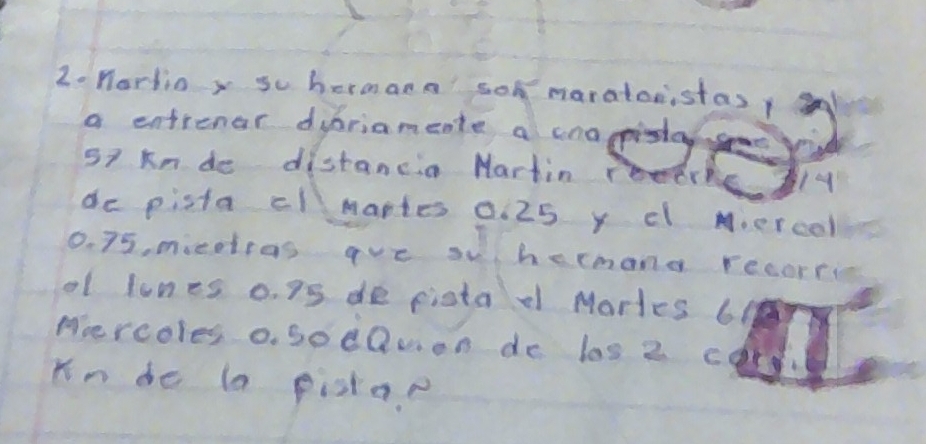 2.- Martin y su hermana son maratonistas, y
a entrenar diariamente a una pista que
57 Km de distancia Martin recorre 3/4
de pista el Martes 0.25 y el Miercol
0.75, mientras que su hermana recorri
el lunes 0.75 de pista el Martes 6/
Miercoles 0.50 ¿Quien de los 2
Km de la pista?